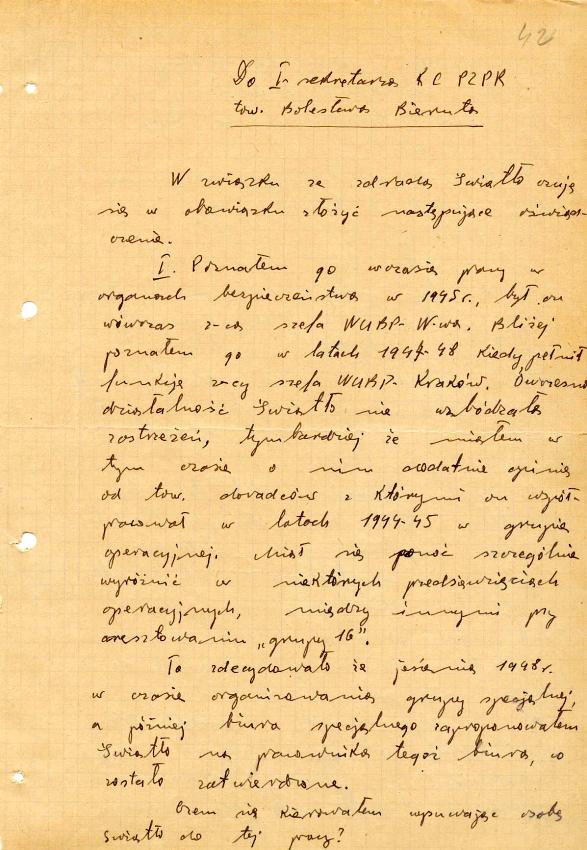 42
Do I sekretarza KC PZPR
tow. Bolesława Bieruta
W związku ze zdradą Światło czuję
się w obowiązku złożyć następujące oświad-
czenie.
I. Poznałem go wczasie pracy w
organach bezpieczeństwa w 1945r., był on
wówczas z-cą szefa WUBP-W-wa. Bliżej
poznałem go w latach 1947-48 kiedy pełnił
funkcję z-cy szefa WUBP-Kraków. Ówczesna
działalność Światło nie wzbudzała
zastrzeżeń, tymbardziej że miałem w
tym czasie o nim dodatnie opinie
od tow. dowódców z którymi on współ-
pracował w latach 1944-45 w grupie
operacyjnej. Miał się ponoć szczególnie
wyróżnić w niektórych przedsięwzięciach
operacyjnych, między innymi przy
aresztowaniu „grupy 16".
To zdecydowało że jesienią 1948r.
w czasie organizowania grupy specjalnej,
a później biura specjalnego zaproponowałem
Światło na pracownika tegoż biura, co
zostało zatwierdzone.
Czem się kierowałem wysuwając osobę
Światło do tej pracy?